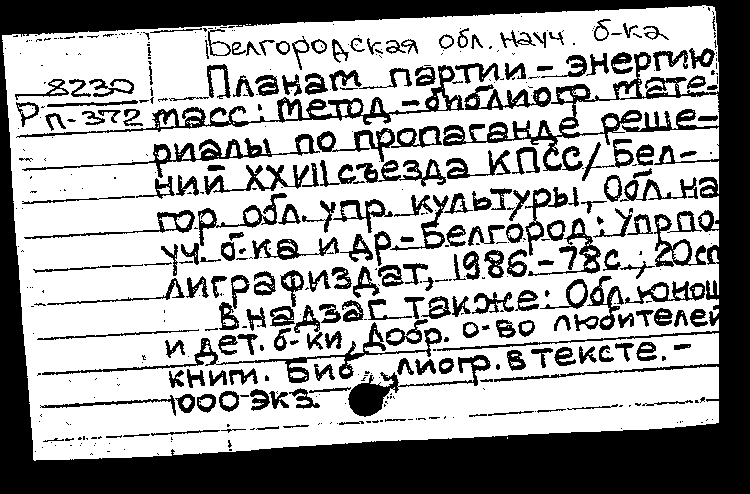 Белгородская обл. науч. б-ка
8230
Р п-372
Планам партии - энергию
масс: метод.-библиогр. мате-
риалы по пропаганде реше-
ний XXVII съезда КПСС/ Бел-
гор. обл. упр. культуры, Обл. на
уч. б-ка и др.-Белгород: Упрпо-
лиграфиздат, 1986.-78с.; 20сп
В надзаг. также: Обл. юнош
и дет. б-ки, Добр. о-во любителей
книги. Библиогр. в тексте. -
1000 экз.